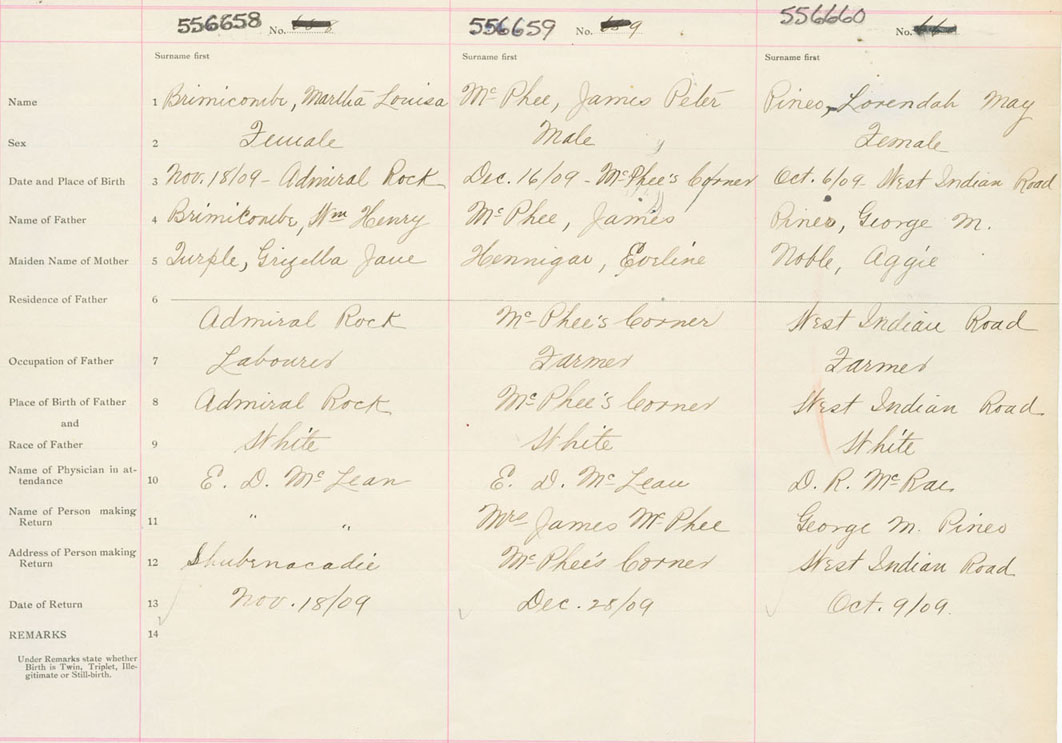 556658 No. 556659 No. 9 556660 No.
Surname first Surname first Surname first
Name 1 Brimicombe, Martha Louisa McPhee, James Peter Pineo, Lorendah May
Sex 2 Female Male Female
Date and Place of Birth 3 Nov. 18/09 - Admiral Rock Dec. 16/09 - McPhee's Corner Oct. 6/09 - West Indian Road
Name of Father 4 Brimicombe, Wm Henry McPhee, James Pineo, George M.
Maiden Name of Mother 5 Turple, Grizella Jane Hennigar, Eveline Noble, Aggie
Residence of Father 6
Admiral Rock McPhee's Corner West Indian Road
Occupation of Father 7 Labourer Farmer Farmer
Place of Birth of Father 8 Admiral Rock McPhee's Corner West Indian Road
and
Race of Father 9 White White White
Name of Physician in at-
tendance 10 E. D. McLean E. D. McLean D. R. McRae
Name of Person making
Return 11 " " Mrs James McPhee George M. Pineo
Address of Person making
Return 12 Shubenacadie McPhee's Corner West Indian Road
Date of Return 13 Nov. 18/09 Dec. 28/09 Oct. 9/09
REMARKS 14
Under Remarks state whether
Birth is Twin, Triplet, Ille-
gitimate or Still-birth.